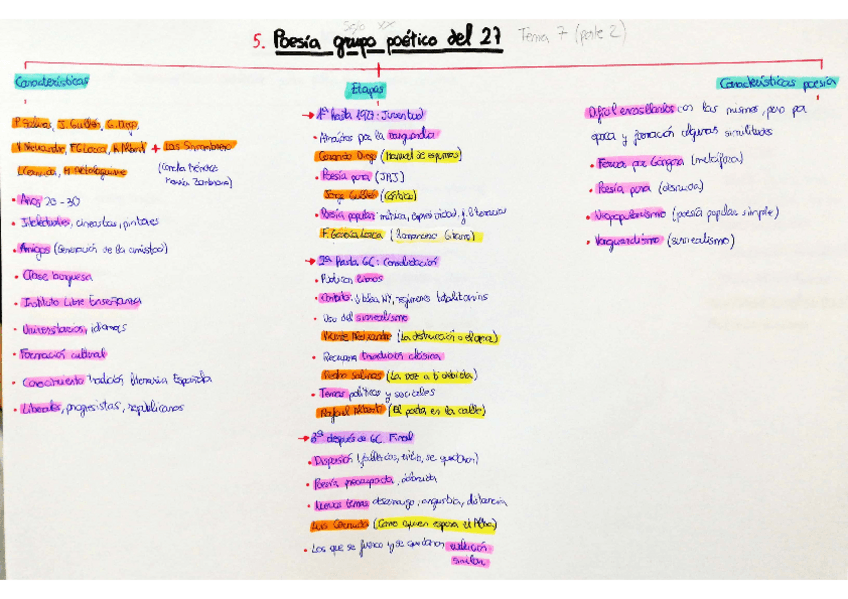 Siglo XX
5. Poesía grupo poético del 27 Tema 7 (parte 2)
Características
P. Salinas, J. Guillén, G. Diego,
V. Aleixandre, F.G Lorca, R. Alberti + Las Sinsombrero
L. Cernuda, M. Altolaguirre (Concha Méndez
María Zambrano)
• Años 20-30
• Intelectuales, cineastas, pintores
• Amigos (Generación de la amistad)
• Clase burguesa
• Instituto Libre Enseñanza
• Universitarios, idiomas
• Formación cultural
• Conocimiento tradición literaria Española
• Liberales, progresistas, republicanos
Etapas
→ 1ª hasta 1927: Juventud
• Atraídos por la vanguardia
Gerardo Diego (Manual de espumas)
• Poesía pura (JRJ)
Jorge Guillén (Cántico)
• Poesía popular: métrica, expresividad, j. literarios
F. García Lorca (Romancero Gitano)
→ 2ª hasta GC: Consolidación
• Publican libros
• Contexto: bolsa NY, regímenes totalitarios
• Uso del surrealismo
Vicente Aleixandre (La destrucción o el amor)
• Recupera tradición clásica
Pedro Salinas (La voz a ti debida)
• Temas políticos y sociales
Rafael Alberti (El poeta en la calle)
→ 3ª después de GC. Final
• Dispersión (fallecidos, exilio, se quedaron)
• Poesía preocupada,
• Nuevos temas: desarraigo, angustia, distancia
Luis Cernuda (Como quien espera el Alba)
• Los que se fueron y se quedaron evolución
similar
Características poesía
Difícil encasillarlos con los mismos, pero por
época y formación algunas similitudes
• Fervor por Góngora (metáfora)
• Poesía pura (desnuda)
• Neopopularismo (poesía popular, simple)
• Vanguardismo (surrealismo)